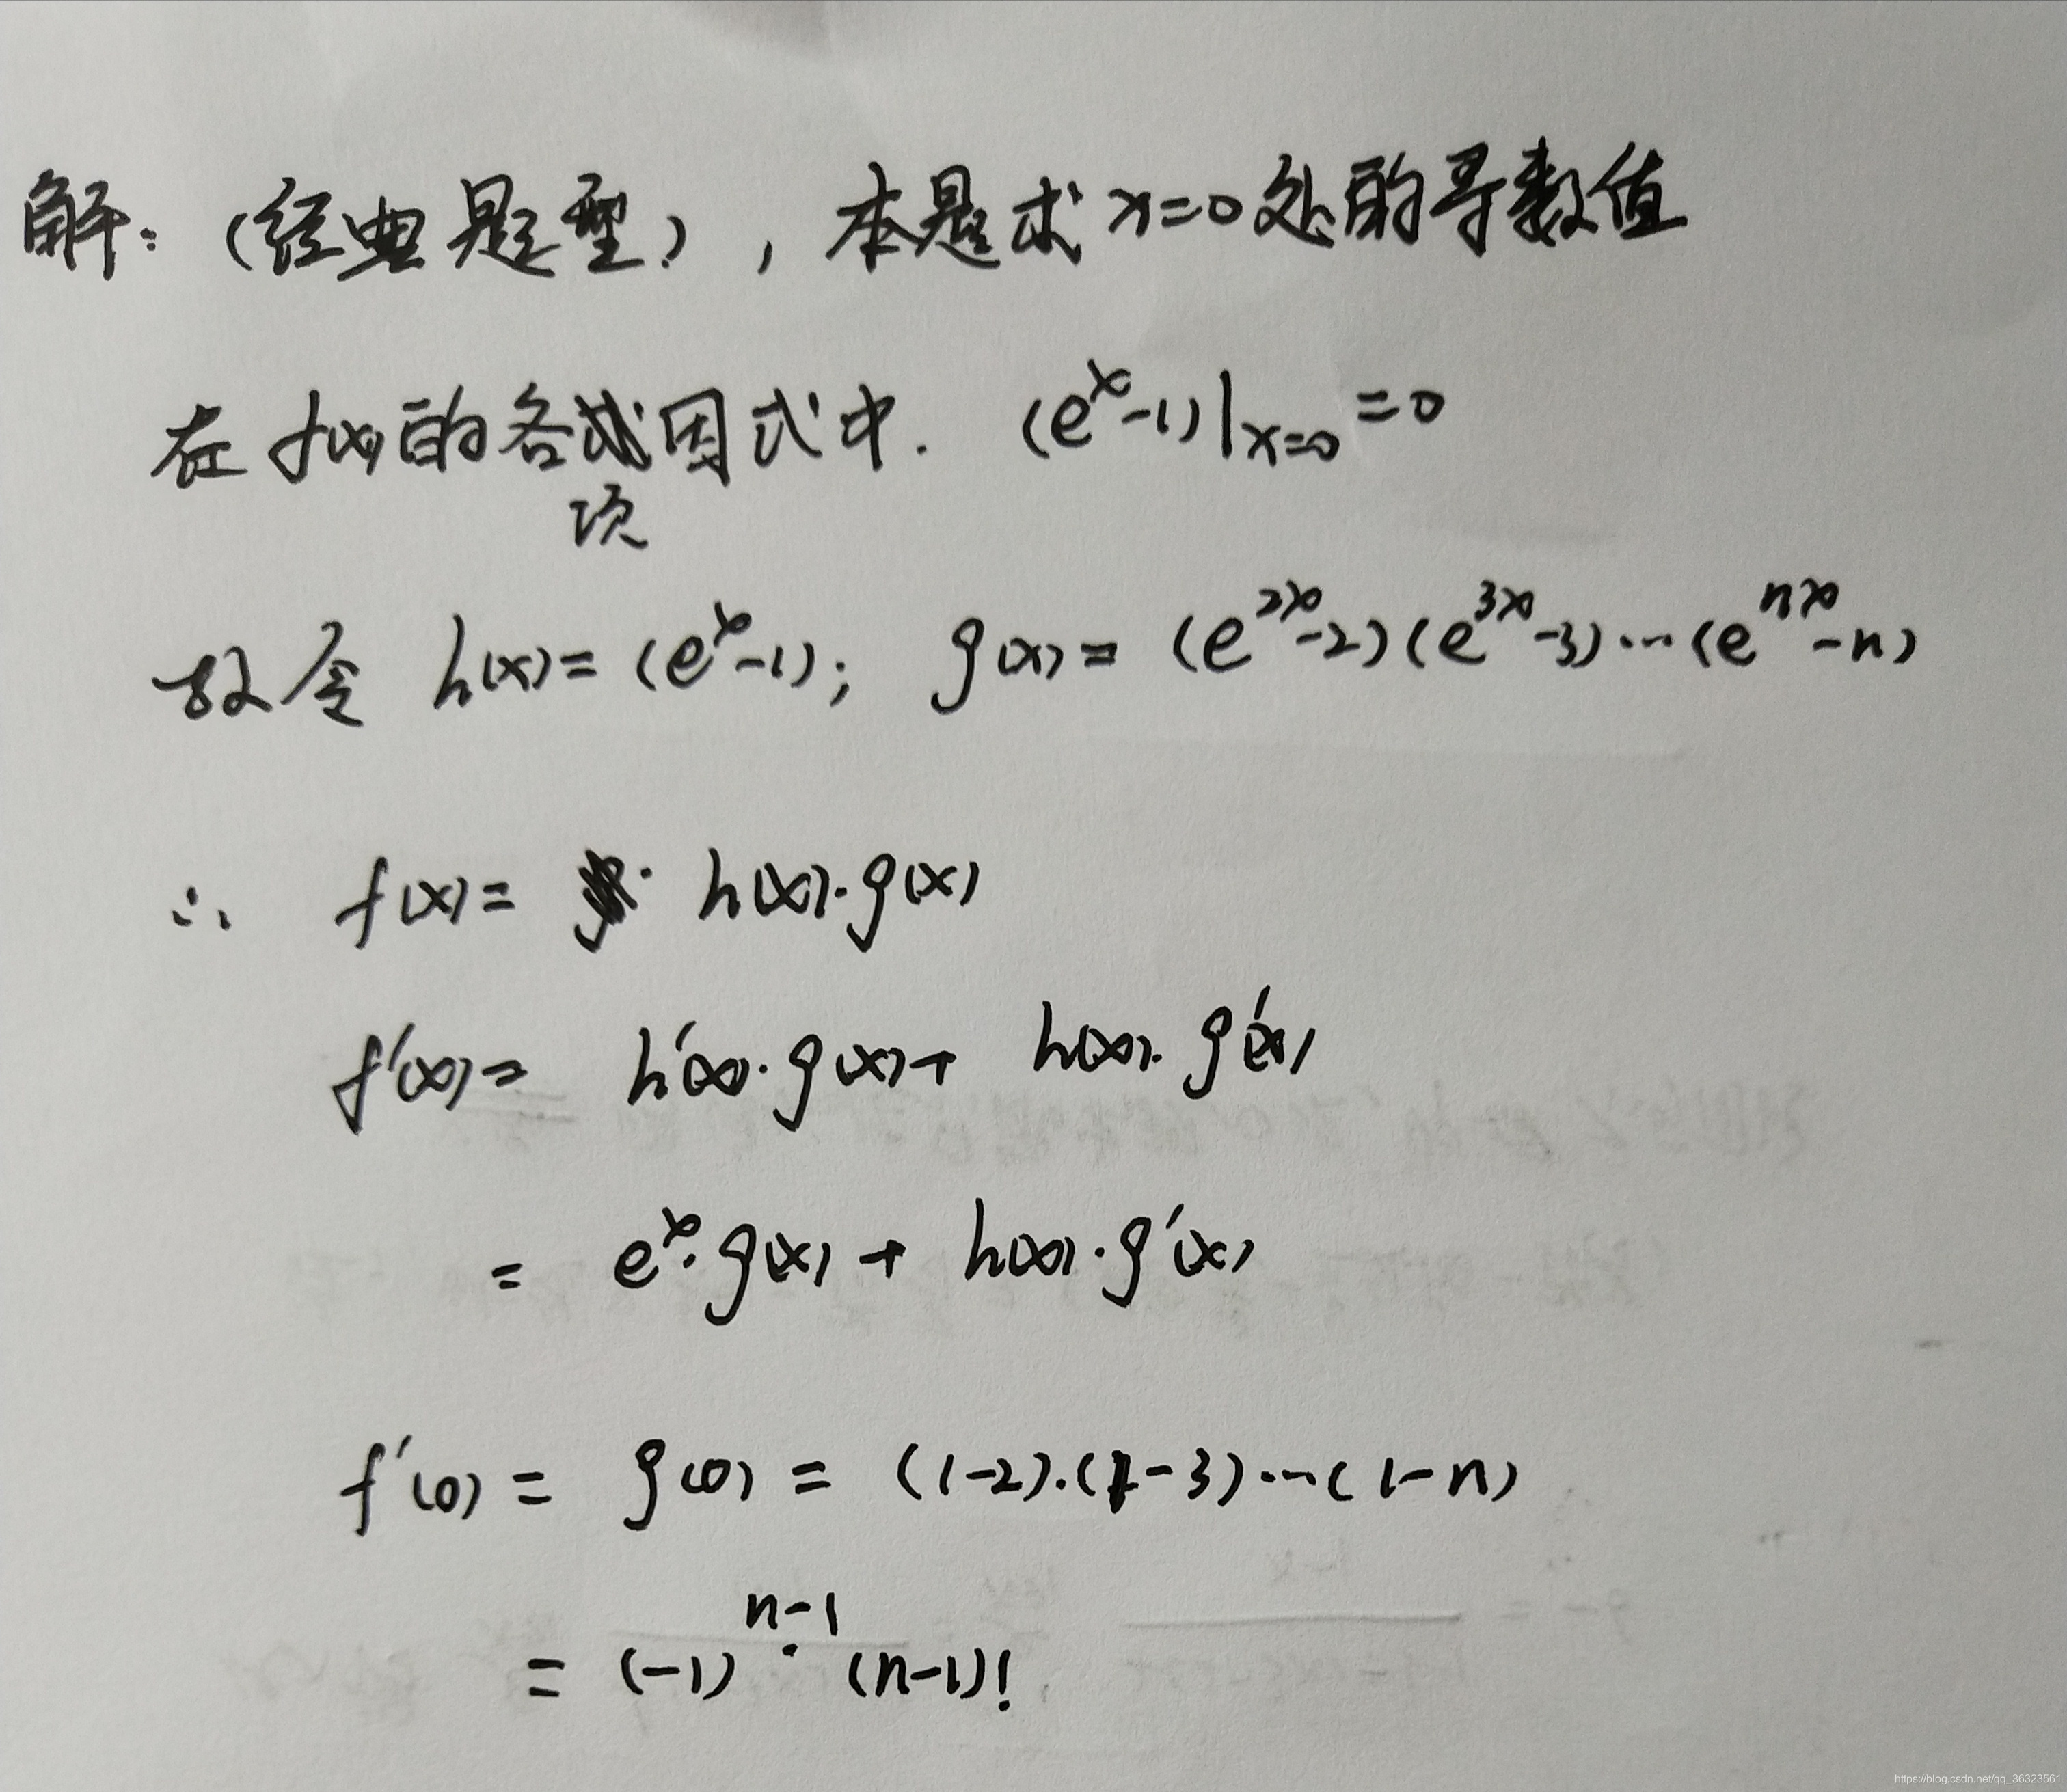 解：（经典题型），本题求x=0处的导数值
在f(x)的各项因式中. (eˣ-1)|ₓ₌₀=0
故令 h(x)=(eˣ-1); g(x)=(e²ˣ-2)(e³ˣ-3)…(eⁿˣ-n)
∴ f(x)= h(x)·g(x)
f'(x)= h'(x)·g(x)+ h(x)·g'(x)
= eˣ·g(x)+ h(x)·g'(x)
f'(0)= g(0)= (1-2)·(1-3)…(1-n)
= (-1)ⁿ⁻¹·(n-1)!
https://blog.csdn.net/qq_36323561